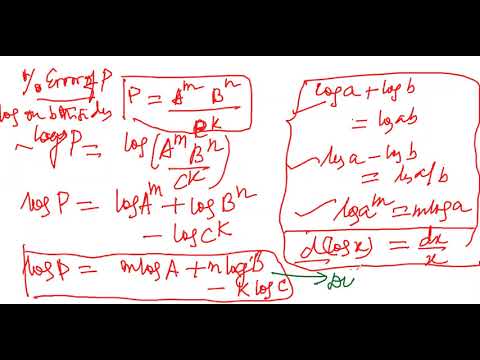 % Error of P
log on both sides
P = A^m B^n / C^k
log P = log (A^m B^n / C^k)
log P = log A^m + log B^n
- log C^k
log P = m log A + n log B
- k log C
log a + log b
= log ab
log a - log b
= log a/b
log a^m = m log a
d(log x) = dx/x